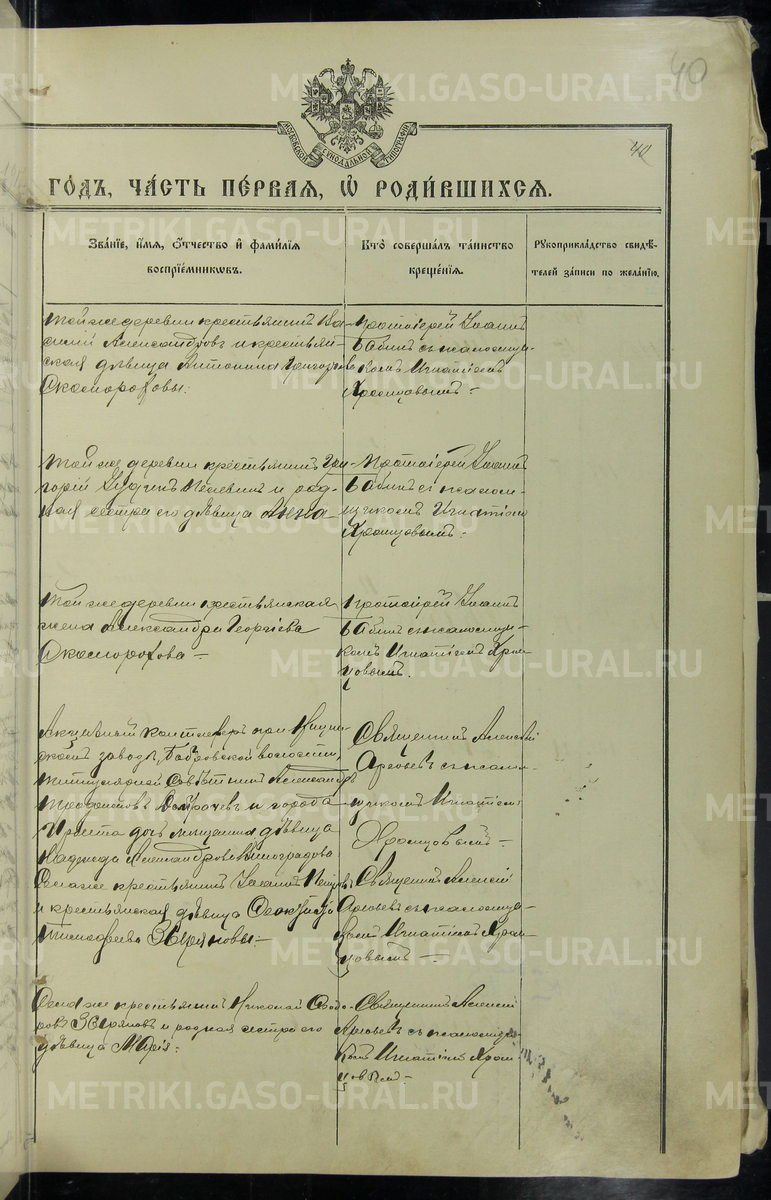 40
40
МОСКОВСКОЙ СѴНОДАЛЬНОЙ ТИПОГРАФІИ
ГО́ДЪ, ЧА́СТЬ ПЕ́РВАЯ, Ѽ РОДИ́ВШИХСѦ.
Зва́нїе, и҆́мѧ, ѻ҆́тчество и҆ фами́лїѧ
воспрїе́мникѡвъ.
Кто̀ соверша́лъ та́инство
креще́нїѧ.
Рꙋкоприкла́дство свидѣ́-
телей за́писи по жела́нїю.
Той же деревни крестьянинъ Ва-
силій Александровъ и крестьян-
ская дѣвица Антонина Григорьева
Скомороховы.
Протоіерей Іоаннъ
Бабинъ съ псаломщи-
комъ Игнатіемъ
Хромцовымъ.
Той же деревни крестьянинъ Гри-
горій и род-
ная сестра его дѣвица Анна
Протоіерей Іоаннъ
Бабинъ съ псалом-
щикомъ Игнатіемъ
Хромцовымъ.
Той же деревни крестьянская
жена Александра Георгіева
Скоморохова
Протоіерей Іоаннъ
Бабинъ съ псаломщи-
комъ Игнатіемъ Хром-
цовымъ.
Акцизный контролеръ при
заводѣ, Бобровской волости,
титулярный Совѣтникъ Александръ
и города
Ирбита дочь мѣщанина дѣвица
Надежда Александрова Виноградова
Священникъ Алексій
Арефьевъ съ псалом-
щикомъ Игнатіемъ
Хромцовымъ
Села же крестьянинъ Іоаннъ Петровъ
и крестьянская дѣвица Феоктиста
Тимофеева Зыряновы.
Священникъ Алексій
Арефьевъ съ псаломщи-
комъ Игнатіемъ Хром-
цовымъ
Села же крестьянинъ Николай Федо-
ровъ Зыряновъ и родная сестра его
дѣвица Марія.
Священникъ Алексій
Арефьевъ съ псаломщи-
комъ Игнатіемъ Хром-
цовым
METRIKI.GASO-URAL.RU